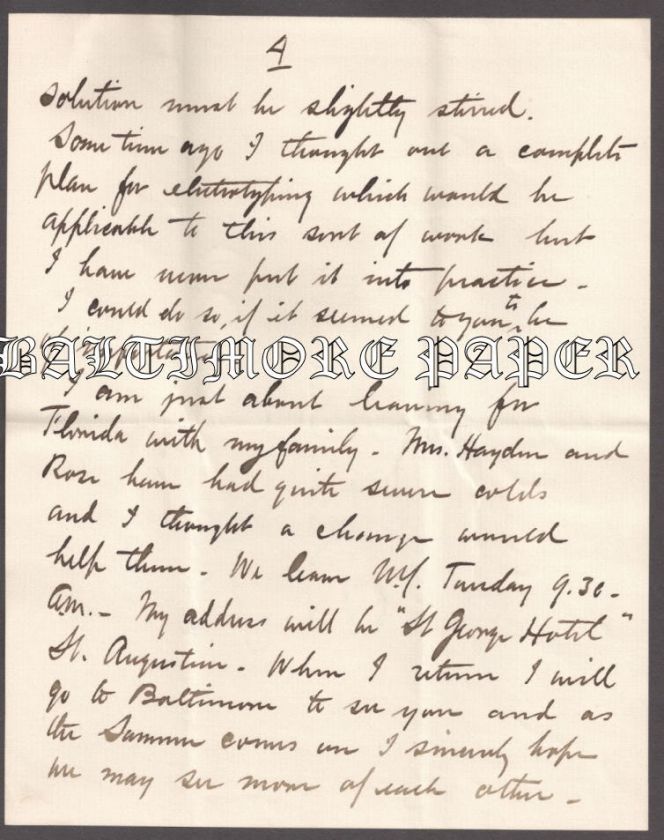 4
solution must be slightly stirred.
Some time ago I thought out a complete
plan for electrotyping which would be
applicable to this sort of work but
I have never put it into practice -
I could do so, if it seemed to you to be
BALTIMORE PAPER
I am just about leaving for
Florida with my family - Mrs. Hayden and
Rose have had quite severe colds
and I thought a change would
help them - We leave N.Y. Tuesday 9.30 -
A.M. - My address will be "St George Hotel"
St. Augustine - When I return I will
go to Baltimore to see you and as
the Summer comes on I sincerely hope
we may see more of each other -